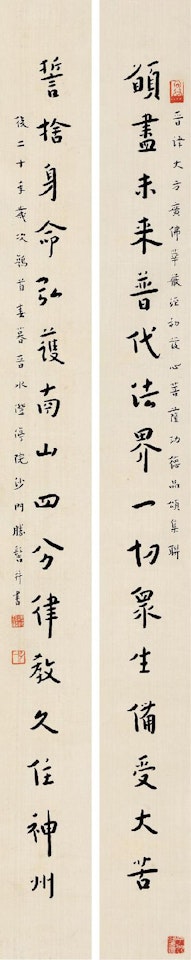 晉譯大方廣佛華嚴經初發心菩薩功德品頌集聯
願盡未来普代法界一切衆生備受大苦
誓捨身命弘護南山四分律教久住神州
後二十年歲次鶉首春暮晉水澄渟院沙門勝髻并書